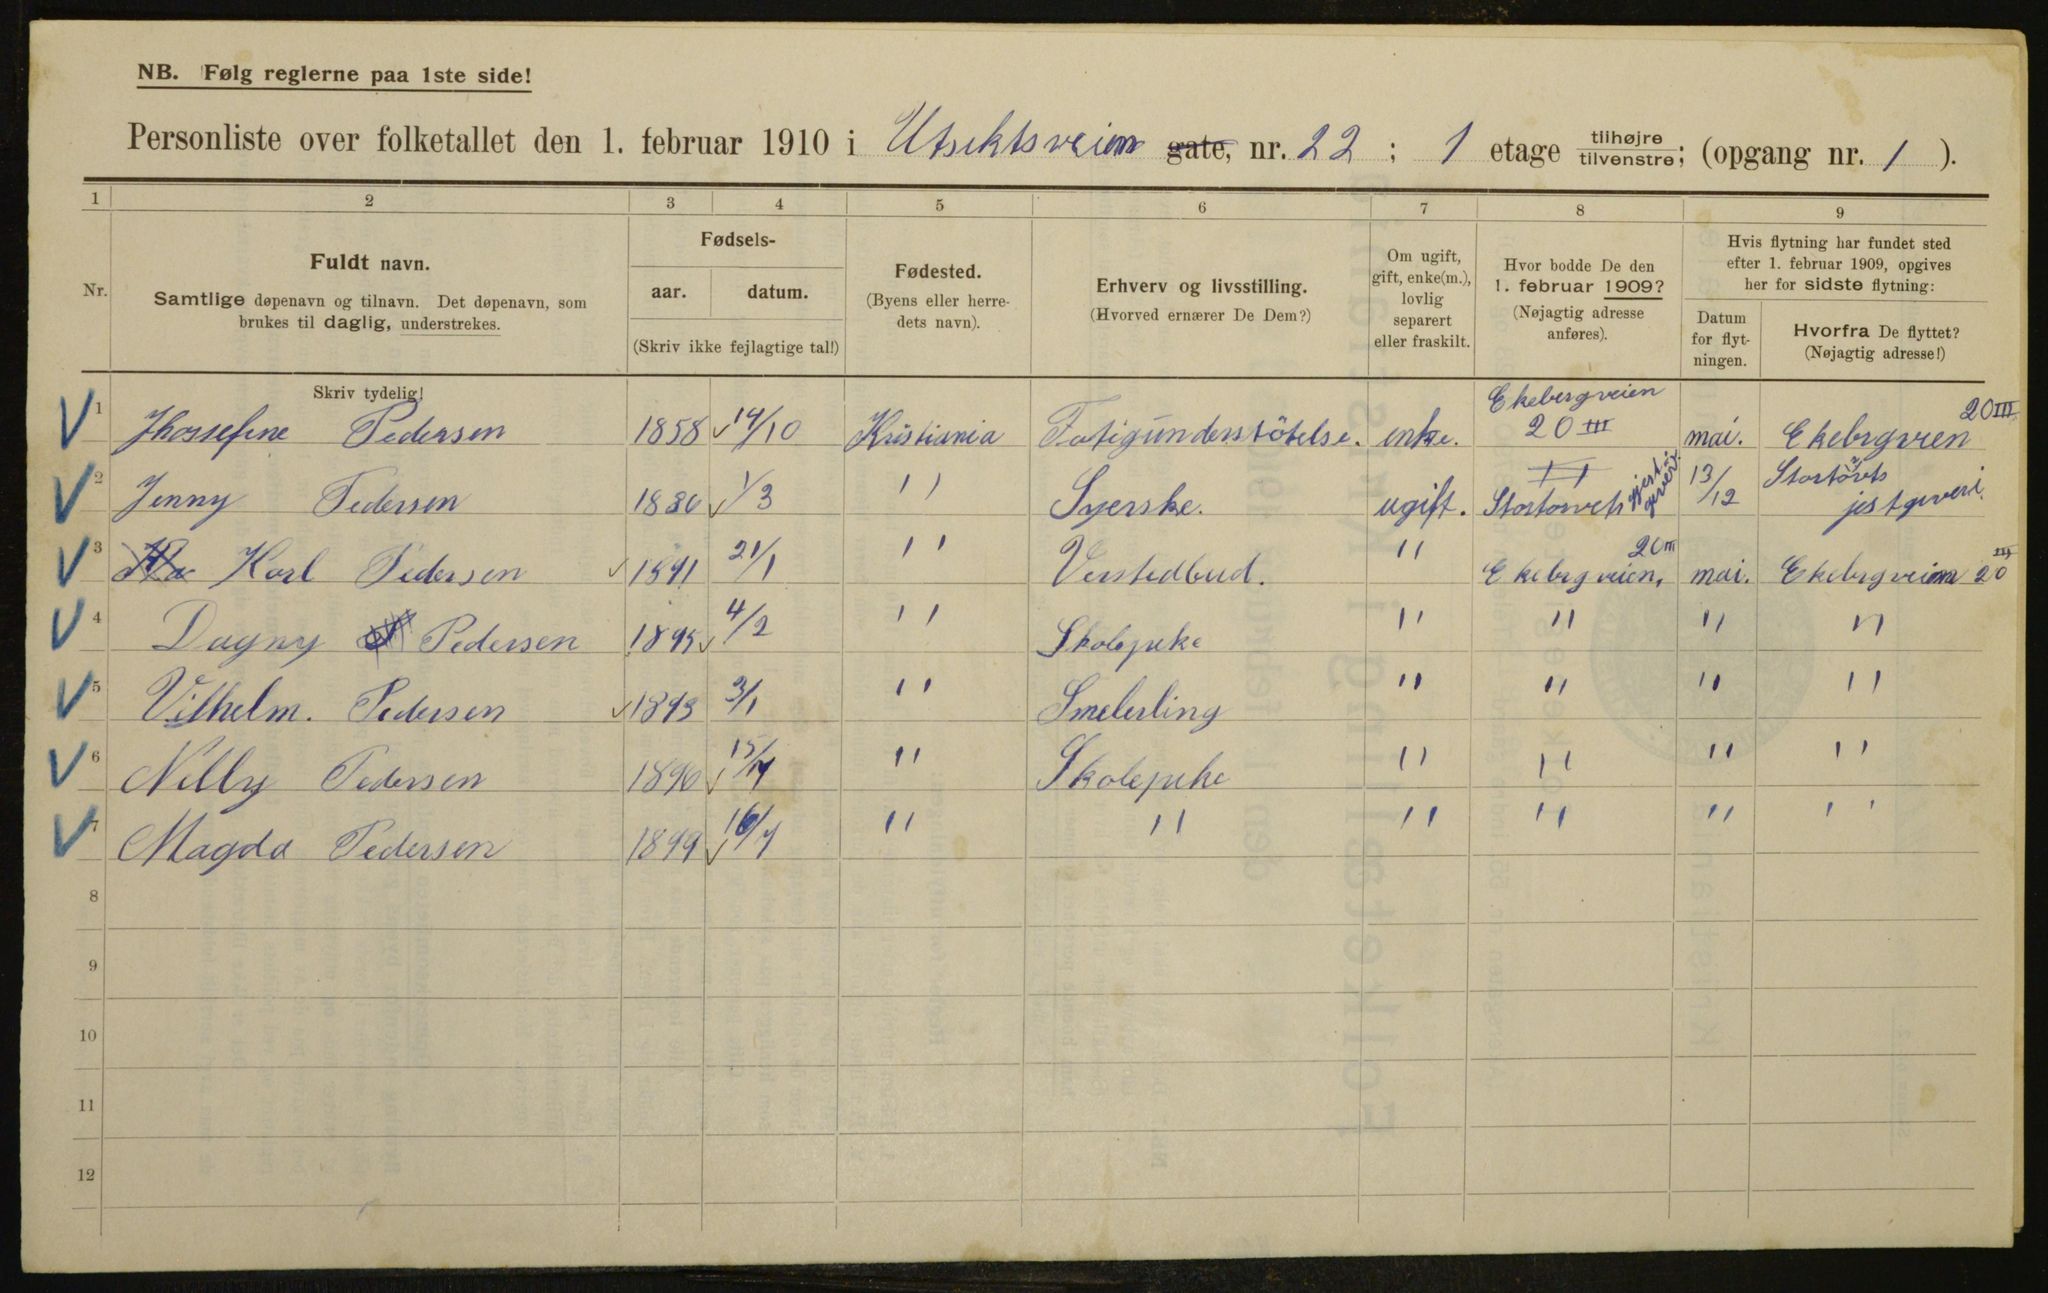 NB. Følg reglerne paa 1ste side!
Personliste over folketallet den 1. februar 1910 i Utsiktsveien gate, nr. 22 ; 1 etage tilhøjre tilvenstre; (opgang nr. 1 ).
1 2 3 4 5 6 7 8 9
Nr.
Fuldt navn.
Samtlige døpenavn og tilnavn. Det døpenavn, som
brukes til daglig, understrekes.
Skriv tydelig!
Fødsels-
aar. datum.
(Skriv ikke fejlagtige tal!)
Fødested.
(Byens eller herre-
dets navn).
Erhverv og livsstilling.
(Hvorved ernærer De Dem?)
Om ugift,
gift, enke(m.),
lovlig
separert
eller fraskilt.
Hvor bodde De den
1. februar 1909?
(Nøjagtig adresse
anføres).
Hvis flytning har fundet sted
efter 1. februar 1909, opgives
her for sidste flytning:
Datum
for flyt-
ningen.
Hvorfra De flyttet?
(Nøjagtig adresse!)
1 Jhossefine Pedersen 1858 14/10 Kristiania Fatigunderstötelse. enke. Ekebergveien 20 III mai. Ekebrgveien 20 III
2 Jenny Pedersen 1/3 " Syerske. ugift. Stortorvets 13/12 jestgiveri.
3 Karl Pedersen 1891 21/1 " Verstedbud. " Ekebrgveien, 20 III mai. Ekebrgveien 20 III
4 Dagny Pedersen 1895 4/2 " Skolepike " " " "
5 Vilhelm. Pedersen 1893 3/1 " Smelerling " " " "
6 Nelly Pedersen 1896 " Skolepike " " " "
7 Magda Pedersen 1899 16/7 " " " " " "
8
9
10
11
12